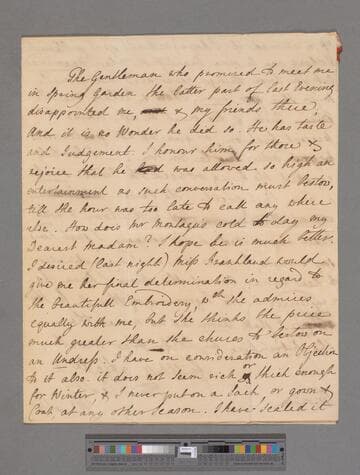 The Gentleman who promised to meet me
in Spring Garden the latter part of last Evening
disappointed me, & my friends there,
And it is no Wonder he did so. He has taste
and Judgement. I honour him for those &
rejoice that he was allowed so high an
entertainment as such conversation must bestow,
till the hour was too late to call any where
else. How does Mr Montagus cold to day my
Dearest Madam? I hope he is much better.
I desired (last night) Miss Granhland would
give me her final determination in regard to
the beautifull Embroidery, wch she admires
equally with me, but she thinks the price
much greater than she chuses to bestow on
an Undress. I have on consideration an Objection
to it also. it does not seem rich or thick enough
for Winter, & I never put on a Sack, or gown &
Coat at any other Season. I have sealed it